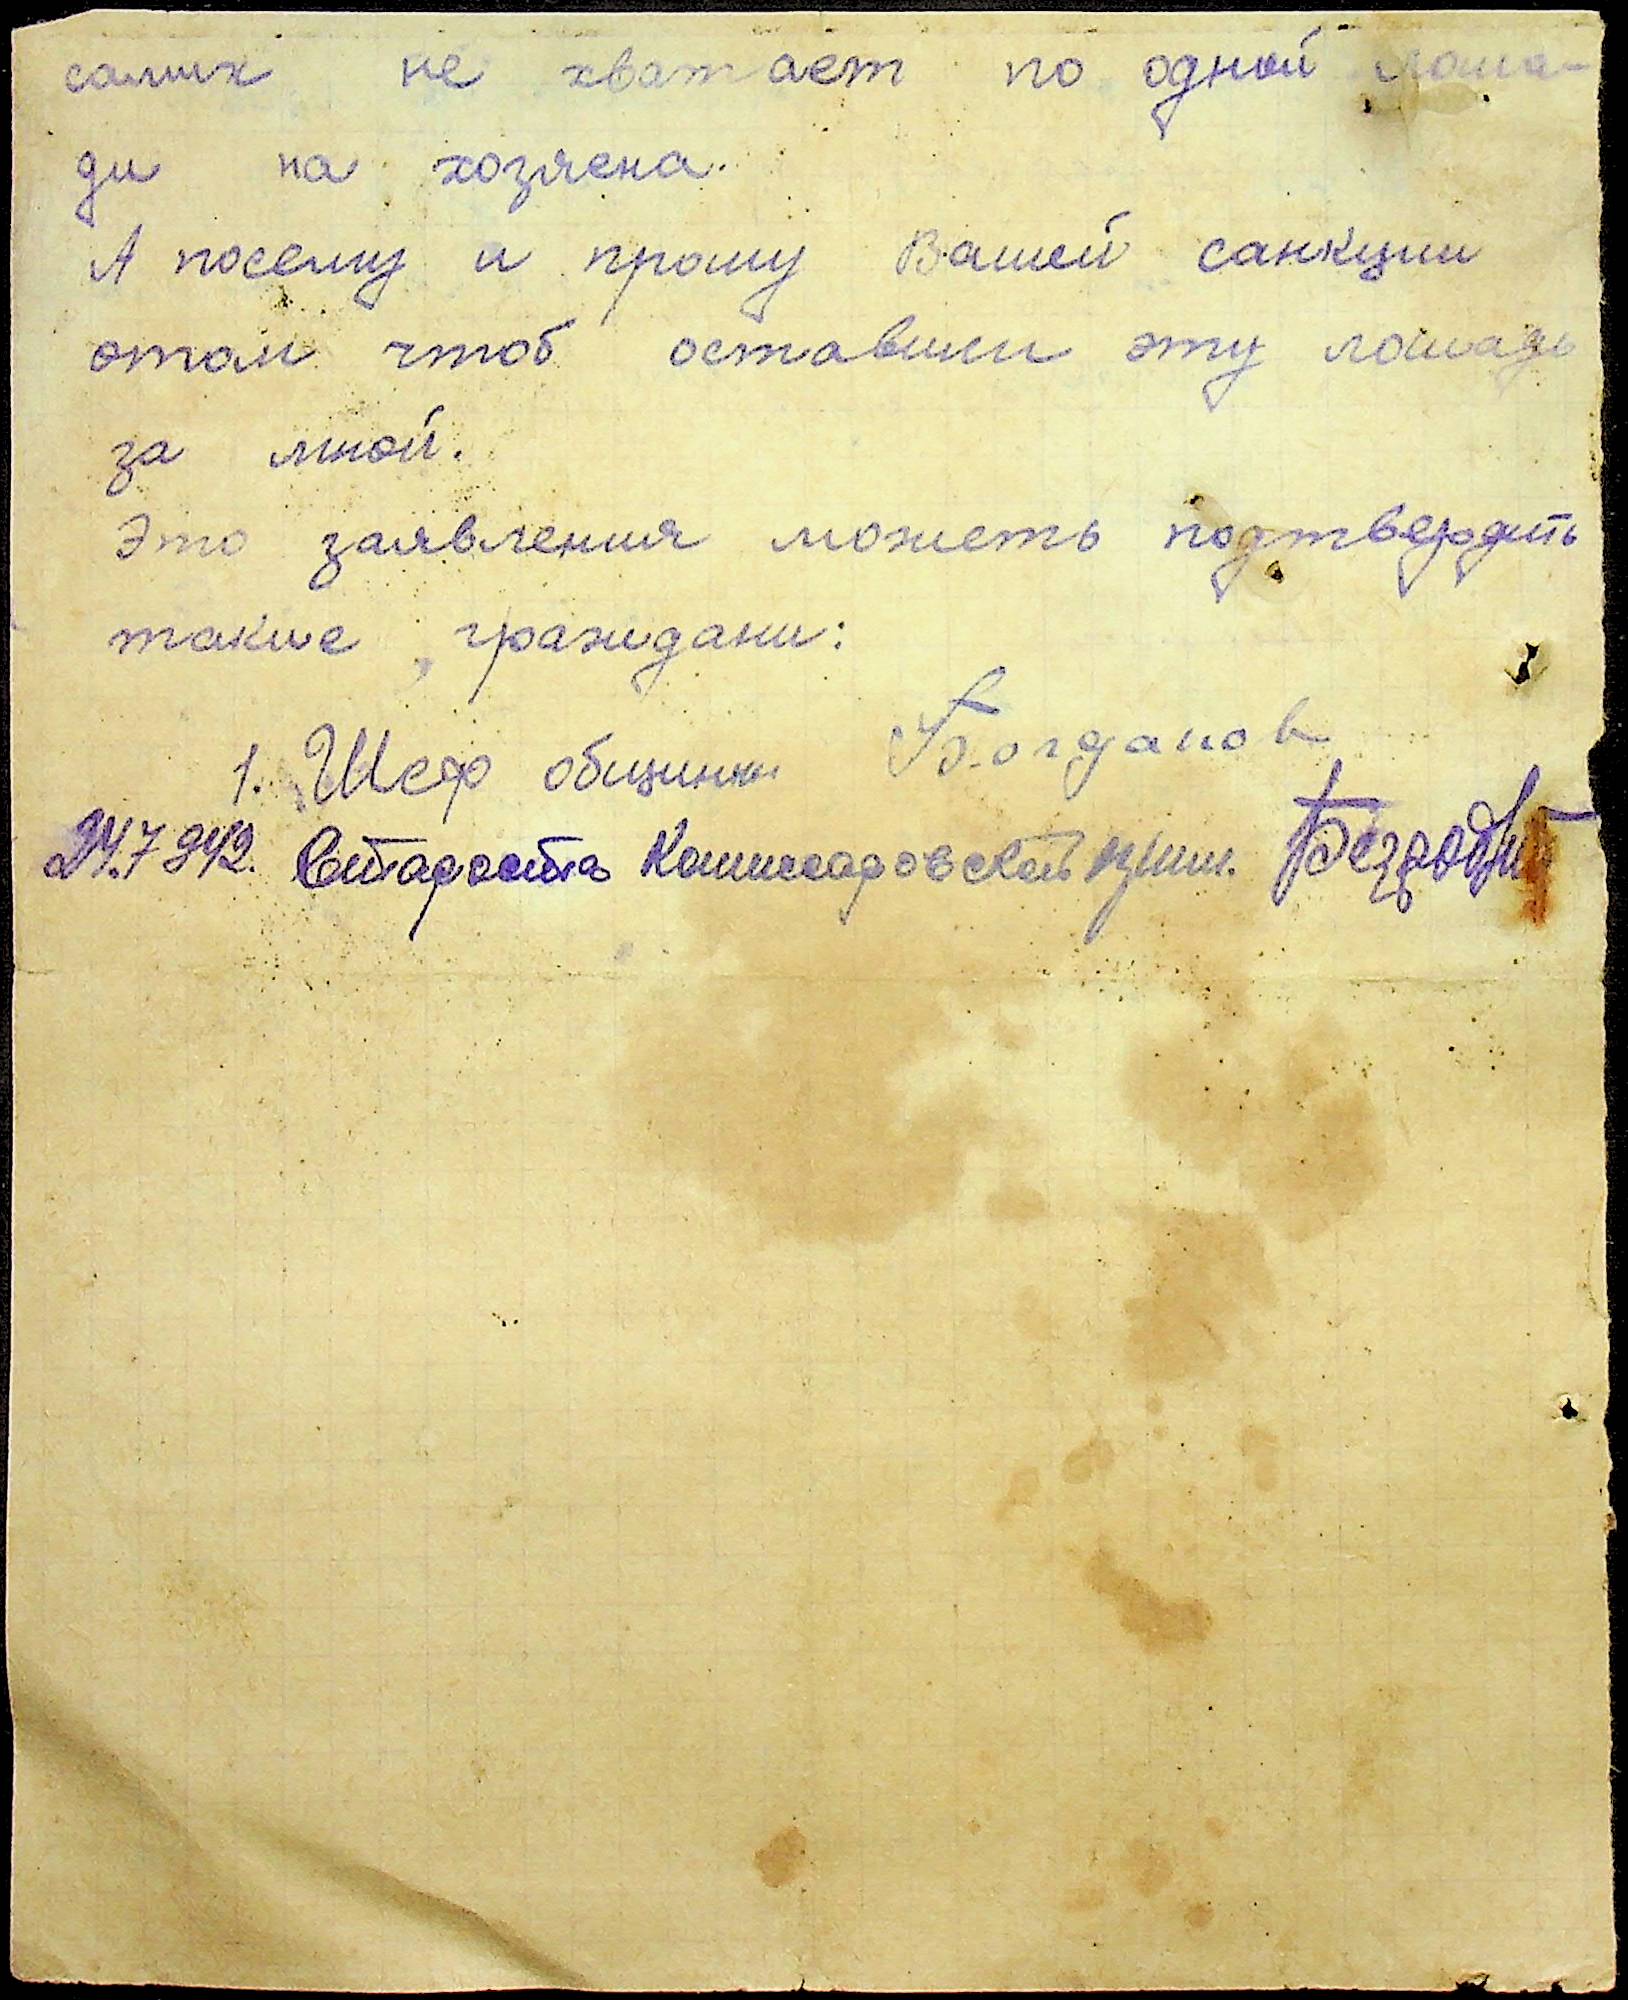 самих не хватает по одной лоша-
ди на хозяена.
А посему и прошу Вашей санкции
отом чтоб оставили эту лошадь
за мной.
Это заявления можеть подтвердить
такие гражидани:
1. Шеф общины Богданов
24.7 942. Староста Комиссаровской